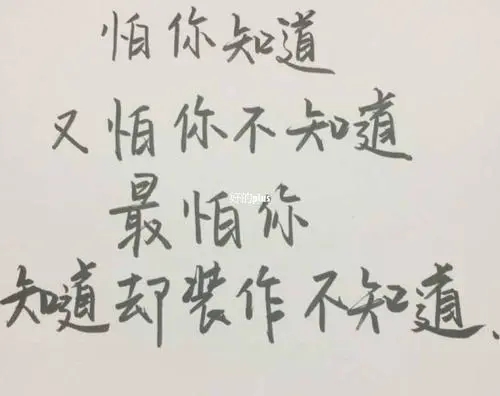 怕你知道
又怕你不知道
好的plus
最怕你
知道却装作不知道、